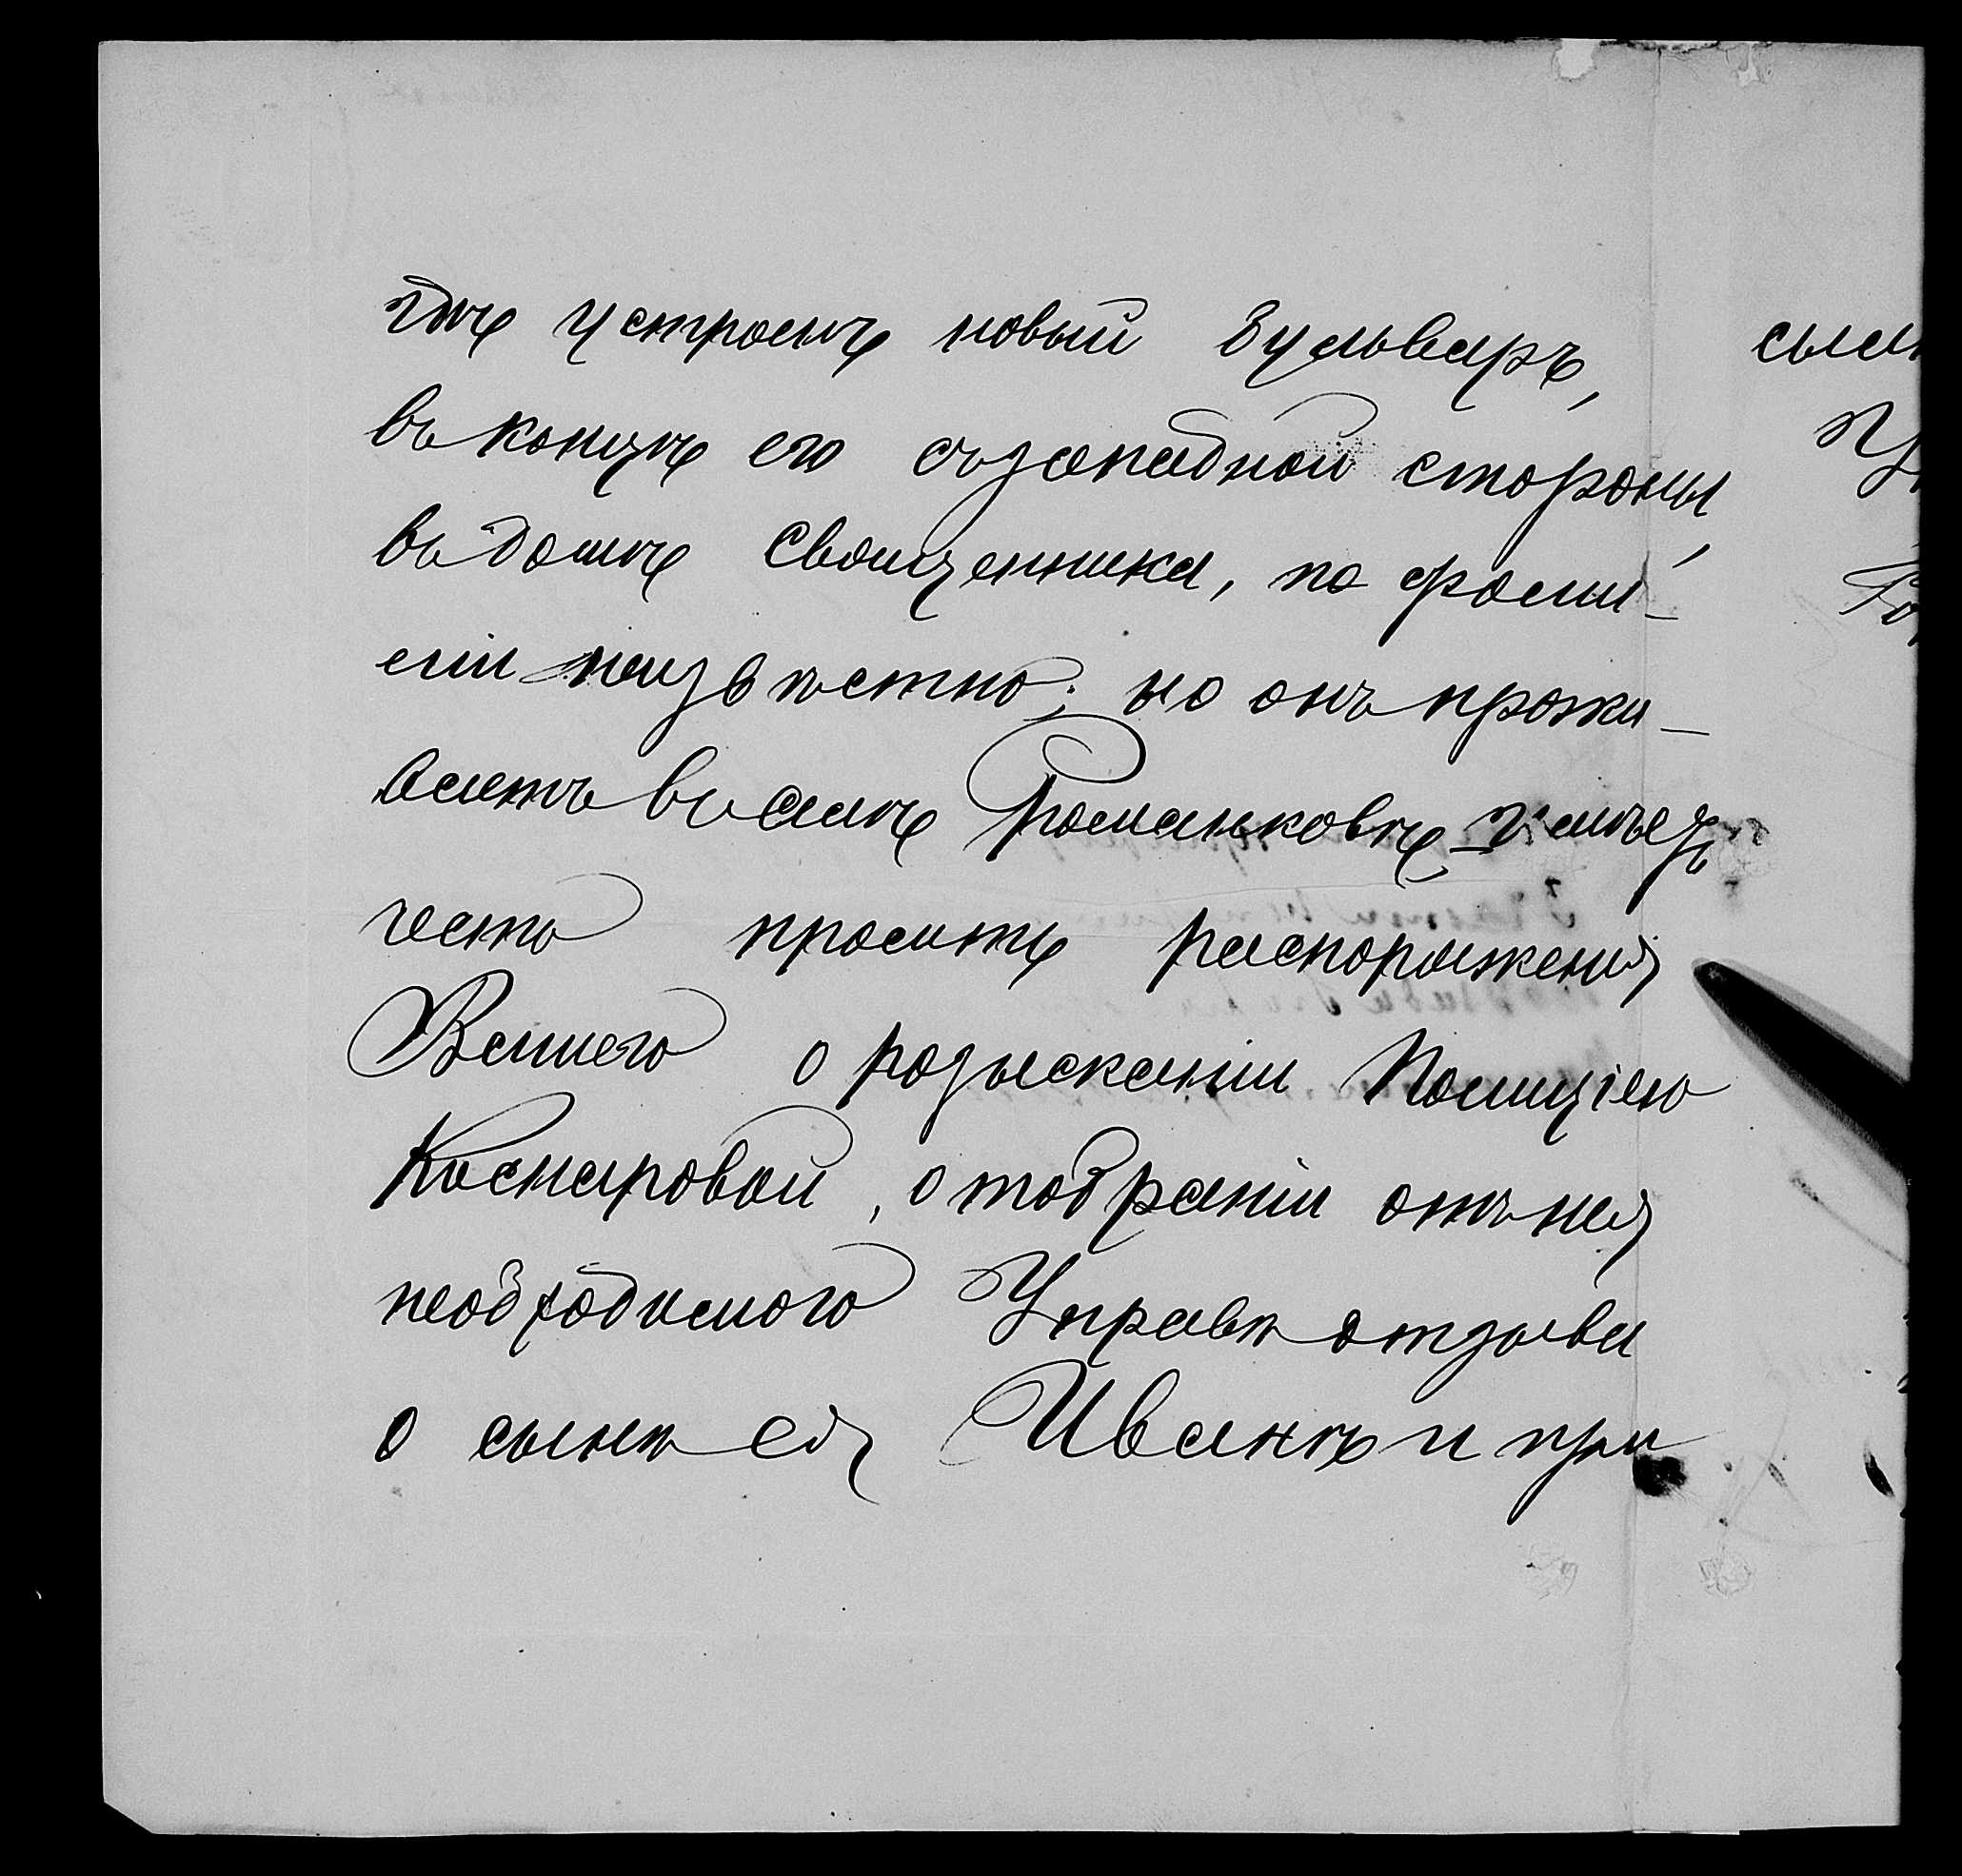 гдѣ устроенъ новый бульваръ, 
въ концѣ его съ западной стороны,
въ домѣ Священника, по фами-
ліи неизвѣстно; но онъ прожи-
ваетъ въ селѣ Романковѣ, имѣетъ
честь просить распоряженія
Вашего о розысканіи Полиціею
Коснаровой, отобраніи отъ нея
необходимого Управѣ отзыва
о сынѣ ея Иванѣ и при